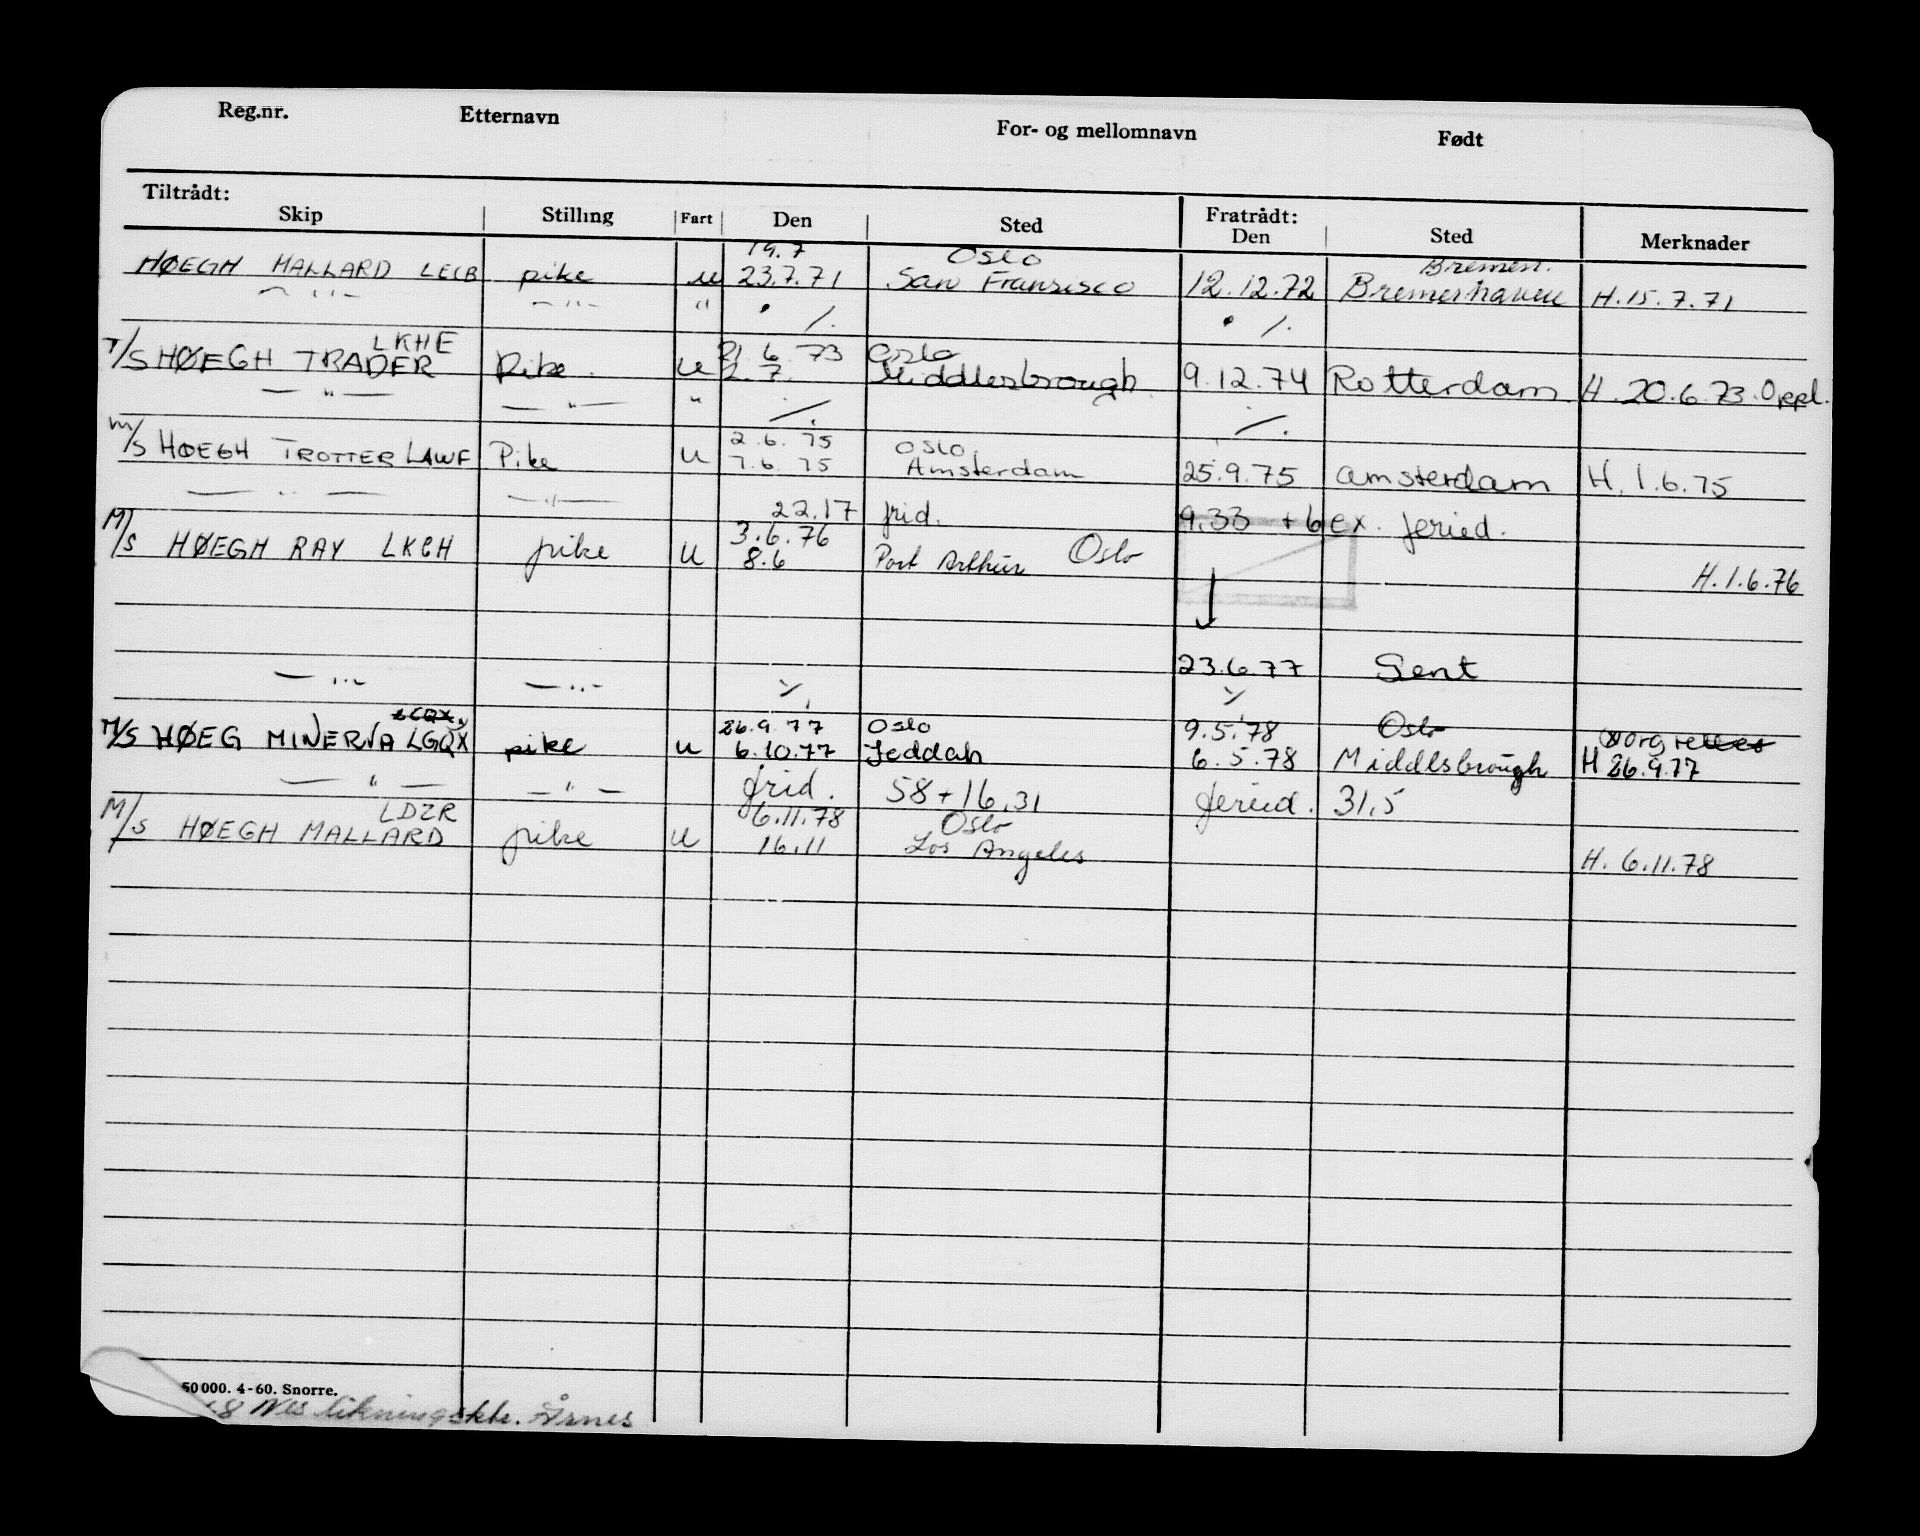 Reg.nr. Etternavn For- og mellomnavn Født
Tiltrådt: Fratrådt:
Skip Stilling Fart Den Sted Den Sted Merknader
19.7 Oslo Bremen.
HØEGH MALLARD LECB pike u 23.7.71 San Fransisco 12.12.72 Bremerhaven H.15.7.71
— " — — " — " ·/. ·/.
LKHE 21.6.73 Oslo
T/S HØEGH TRADER Pike u 2.7. Middlesbrough 9.12.74 Rotterdam H. 20.6.73. Oppl.
— " — — " — " ·/. ·/.
2.6.75 Oslo
M/S HØEGH TROTTER LAWF Pike u 7.6.75 Amsterdam 25.9.75 Amsterdam H. 1.6.75
— " — — " — 22.17 frid. 9.33 + 6 ex. feried.
3.6.76 Oslo
M/S HØEGH RAY LKCH pike u 8.6 Port Arthur H.1.6.76
23.6.77 Gent
— " — — " — ·/. ·/.
26.9.77 Oslo 9.5.78 Oslo
M/S HØEG MINERVA LGQX pike u 6.10.77 Jeddah 6.5.78 Middlsbrough H 26.9.77
— " — — " — frid. 58+16,31 feried. 31,5
LDZR 6.11.78 Oslo
M/S HØEGH MALLARD pike u 16.11 Los Angeles H. 6.11.78
50 000. 4-60. Snorre.
Nes likningsktr. Årnes